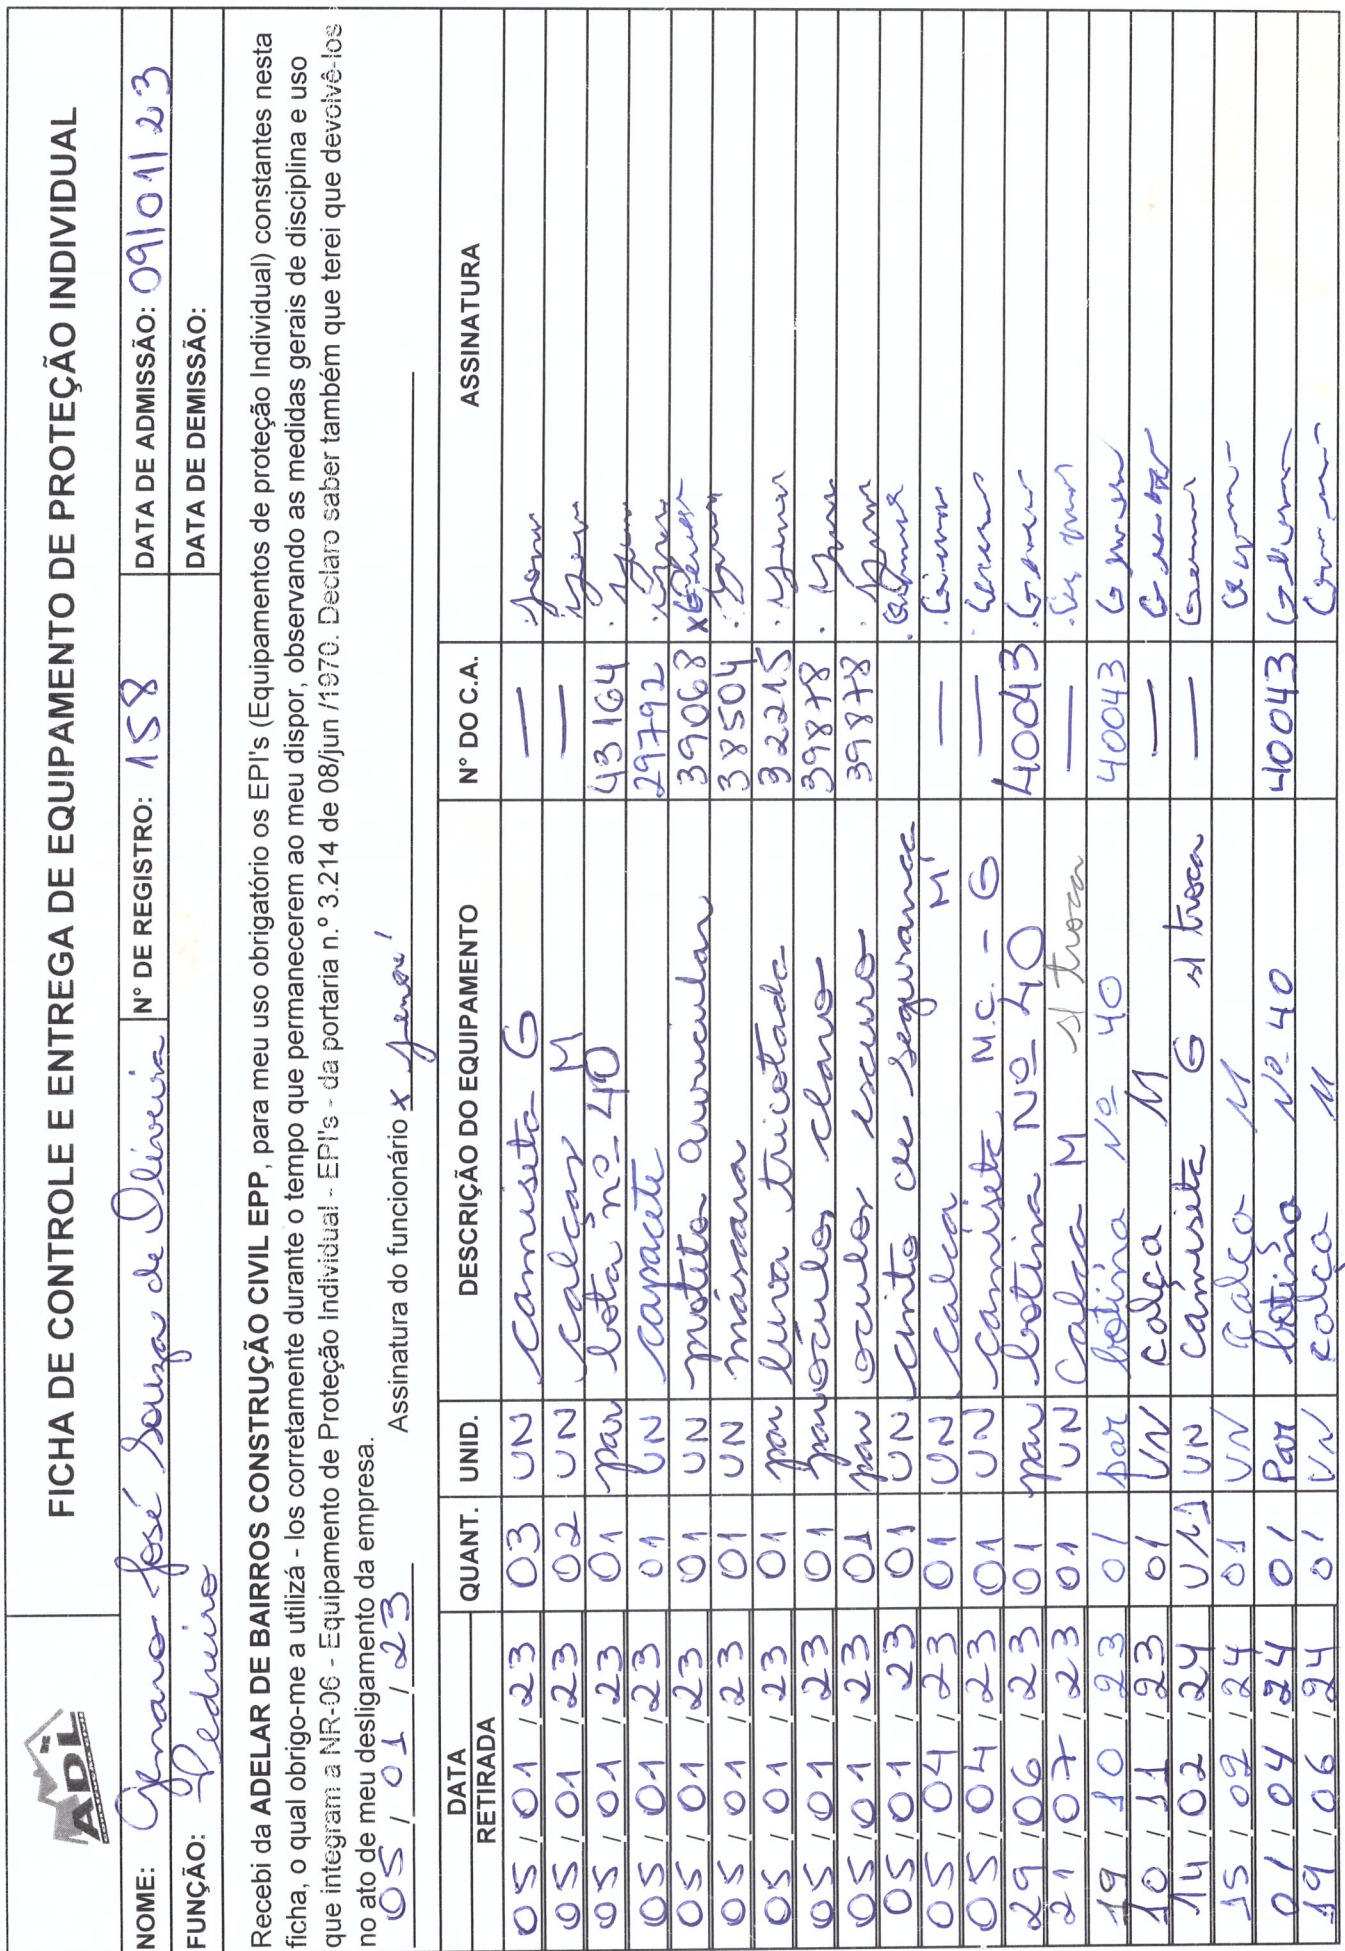 ADL
FICHA DE CONTROLE E ENTREGA DE EQUIPAMENTO DE PROTEÇÃO INDIVIDUAL
NOME: Genaro José Souza de Oliveira N° DE REGISTRO: 158 DATA DE ADMISSÃO: 09/01/23
FUNÇÃO: Pedreiro DATA DE DEMISSÃO:
Recebi da ADELAR DE BAIRROS CONSTRUÇÃO CIVIL EPP, para meu uso obrigatório os EPI's (Equipamentos de proteção Individual) constantes nesta
ficha, o qual obrigo-me a utilizá - los corretamente durante o tempo que permanecerem ao meu dispor, observando as medidas gerais de disciplina e uso
que integram a NR-06 - Equipamento de Proteção Individual - EPI's - da portaria n.º 3.214 de 08/jun /1970. Declaro saber também que terei que devolvê-los
no ato de meu desligamento da empresa.
05/01/23 Assinatura do funcionário x
DATA RETIRADA QUANT. UNID. DESCRIÇÃO DO EQUIPAMENTO N° DO C.A. ASSINATURA
05/01/23 03 UN camiseta G —
05/01/23 02 UN calças M —
05/01/23 01 par bota nº 40 43164
05/01/23 01 UN capacete 29792
05/01/23 01 UN proteto auricular 39068
05/01/23 01 UN máscara 38504
05/01/23 01 par luva tricotada 32215
05/01/23 01 par óculos claro 39878
05/01/23 01 par oculos escuro 39878
05/01/23 01 UN cinto de segurança
05/04/23 01 UN calça M —
05/04/23 01 UN camiseta M.C. - G —
29/06/23 01 par botina Nº 40 40043
21/07/23 01 UN Calça M s/ troca —
19/10/23 01 par botina Nº 40 40043
10/11/23 01 UN calça M —
14/02/24 UN camiseta G s/ troca —
15/02/24 01 UN Calça M
01/04/24 01 Par botina Nº 40 40043
19/06/24 01 UN calça M